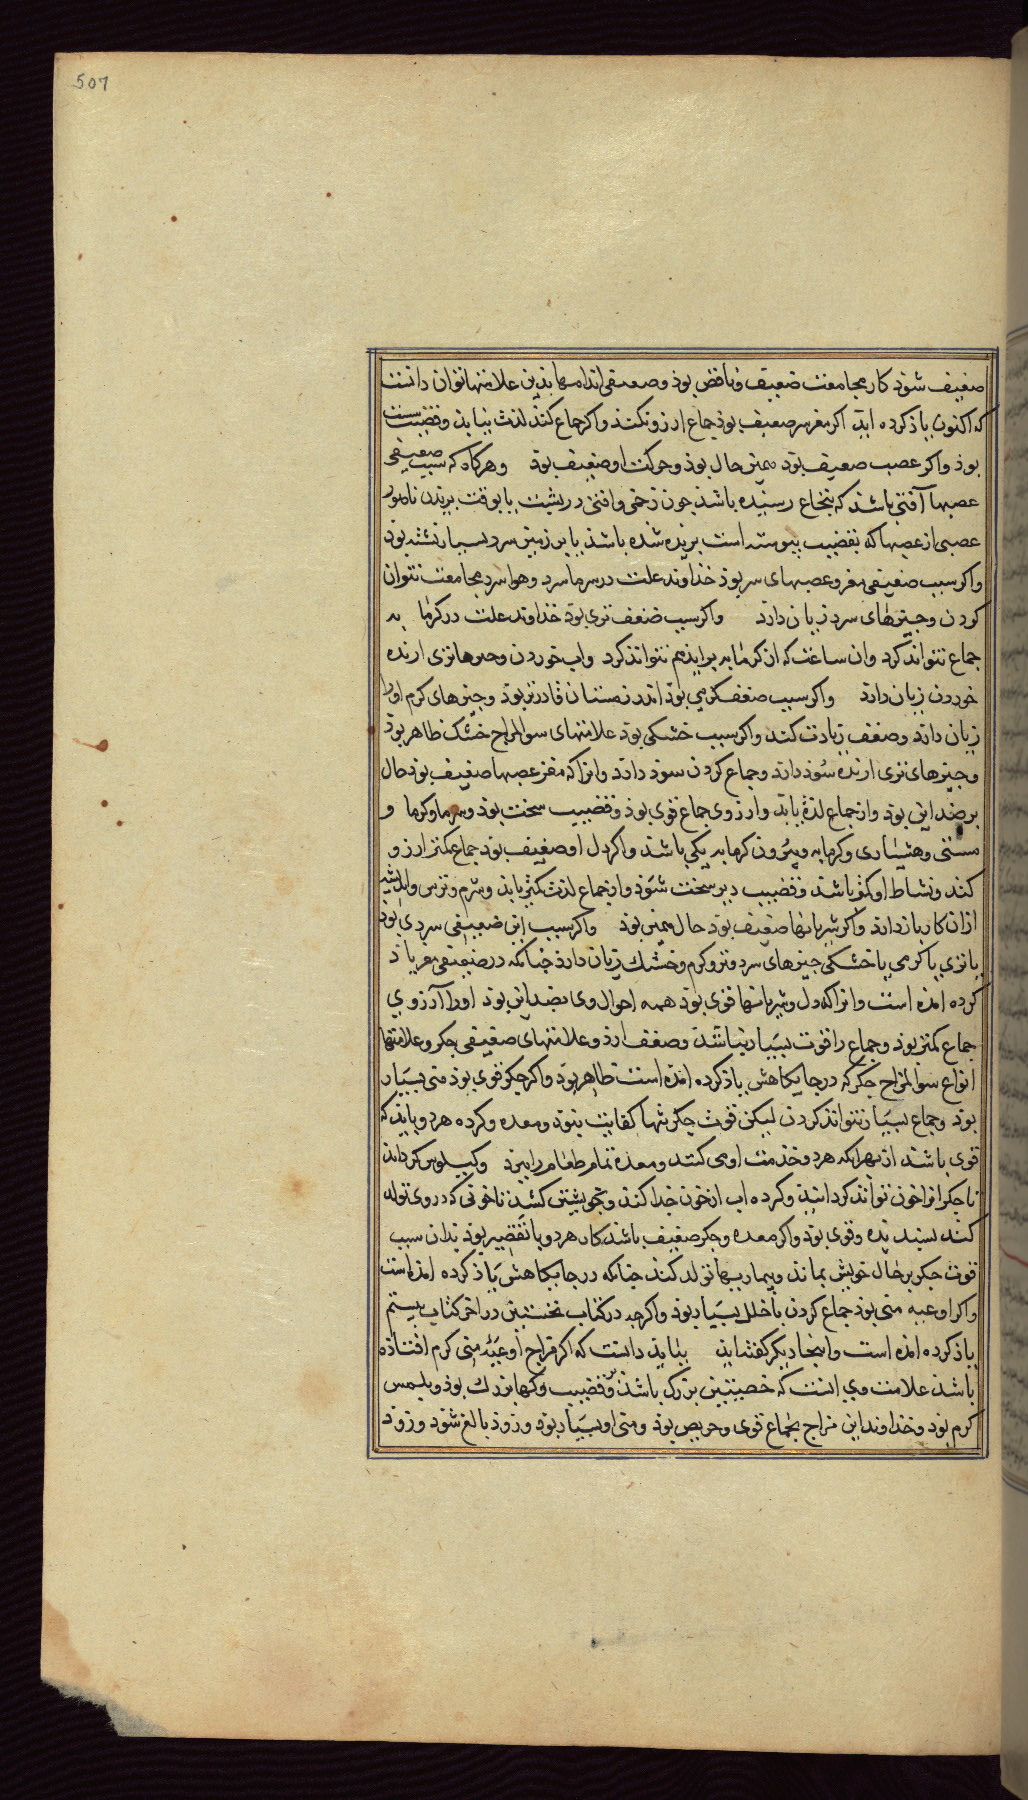 507
ضعیف شود کار مجامعت ضعیف و ناقص بوذ و ضعیفی اندامها بدین علامتها توان دانست
که اکنون یاذ کرده اید اکر مغز سر ضعیف بوذ جماع ارزو نکند و اکر جماع کند لذت نیابد و قضیب سست
بوذ و اکر عصب ضعیف بوذ همین حال بوذ و حرکت او ضعیف بوذ و هرکاه که سبب ضعیفی
عصبها آفتی باشد که بنخاع رسیده باشد جون زخمی و افتی در پشت یا بوقت بریدن ناصور
عصبی از عصبها که بقضیب پیوسته است بریده شده باشد یا بر زمین سرد بسیار نشسته بوذ
و اکر سبب ضعیفی مغز و عصبهای سر بوذ خذاوند علت در سرما سرد و هوا سرد مجامعت نتوان
کردن و جیزهای سرد زیان دارد و اکر سبب ضعف تری بوذ خذاوند علت در کرمابه
جماع نتواند کرد وان ساعت که از کرمابه براید هم نتواند کرد واب خوردن و جیزها تری ارنده
خوردن زیان دارد و اکر سبب ضعف کرمی بوذ اندر زمستان قادرتر بوذ و جیزهای کرم اورا
زیان دارد و ضعف زیادت کند و اکر سبب خشکی بوذ علامتهای سوالمزاج خشک ظاهر بوذ
و جیزهای تری ارنده سوذ دارد و جماع کردن سوذ دارد و انرا که مغز عصبها ضعیف بوذ حال
بر ضد این بوذ و از جماع لذة یابد و ارزوی جماع قوی بوذ و قضیب سخت بوذ و سرما و کرما و
مستی و هشیاری و کرمابه و بیرون کرمابه یکی باشد و اکر دل او ضعیف بوذ جماع کمتر ارزو
کند و نشاط او کمتر باشد و قضیب دیر سخت شوذ و از جماع لذت کمتر یابد و شرم و ترس و اندیشه
ازان کار باز دارد و اکر شریانها ضعیف بوذ حال همین بوذ و اکر سبب این ضعیفی سردی بوذ
یا تری یا کرمی یا خشکی جیزهای سرد و تر و کرم و خشک زیان دارد جنانکه در ضعیفی مغز یاذ
کرده امده است و انرا که دل و شریانها قوی بوذ همه احوال وی بضد این بوذ اورا آرزوی
جماع کمتر بوذ و جماع را قوت بسیار نباشد و ضعف ارد و علامتهای ضعیفی جکر و علامتها
انواع سوالمزاج جکر که در جایکاهش یاذ کرده امده است ظاهر بوذ و اکر جکر قوی بوذ منی بسیار
بوذ و جماع بسیار تتواند کردن لیکن قوت جکر تنها کفایت نبوذ و معده و کرده هر دو باید که
قوی باشند از بهر انکه هر دو خذمت او می کنند و معده تمام طعام را بپزد و کیلوس کرداند
تا جکر انرا خون تواند کردانید و کرده اب از خون جدا کند و بخویشتن کشد تا خونی که در وی تولد
کند پسندیده و قوی بوذ و اکر معده و جکر ضعیف باشد کار هر دو با تقصیر بوذ بدان سبب
قوت جکر بر حال خویش بماند و بیماریها تولد کند جنانکه در جایکاهش یاذ کرده امده است
و اکر اوعیه منی بوذ جماع کردن با خلل بسیار بوذ و اکرجه در کتاب نخستین در اخر کتاب بیستم
یاذ کرده امده است و اینجا دیکر کفته اید بباید دانست که اکر مزاج اوعیه منی کرم افتاده
باشد علامت وی انست که خصیتین بزرک باشد و قضیب و رکها بزرک بوذ و بلمس
کرم بوذ و خذاوند این مزاج بجماع قوی و حریص بوذ و منی او بسیار بوذ و زوذ بالغ شوذ و زوذ